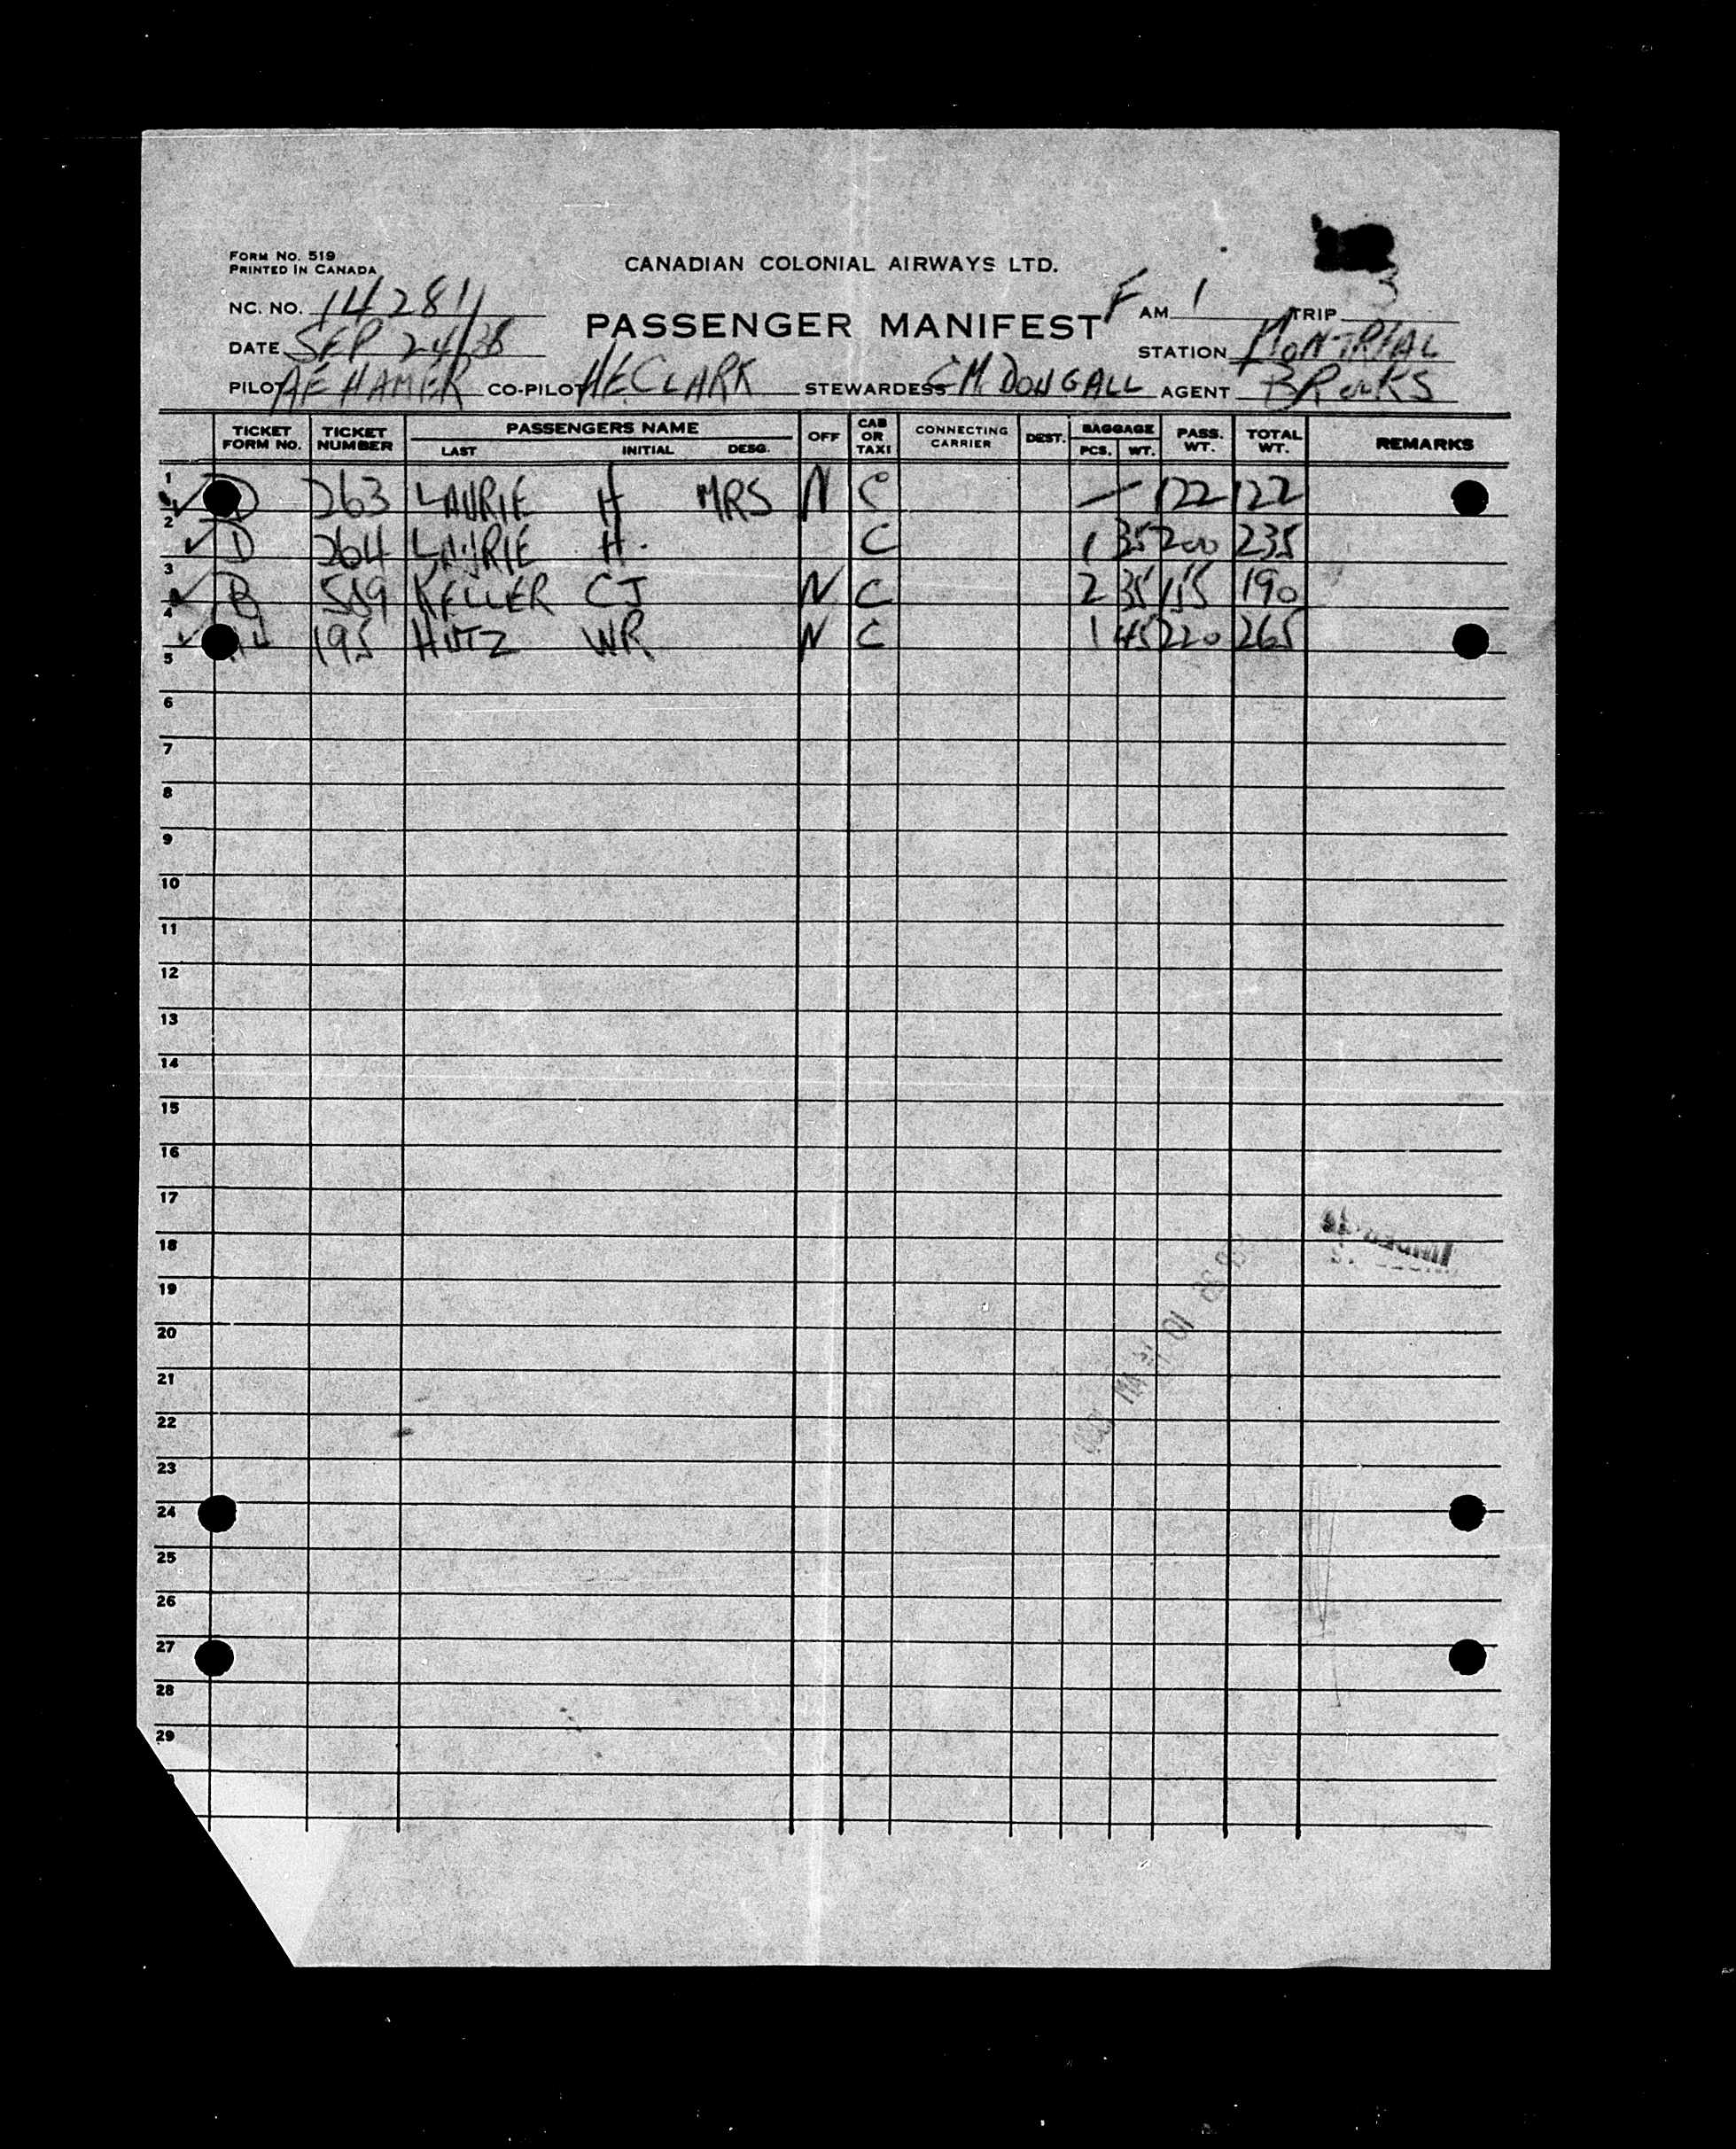 FORM NO. 519
PRINTED IN CANADA
CANADIAN COLONIAL AIRWAYS LTD.
NC. NO. 14281
PASSENGER MANIFEST
F AM 1 TRIP 3
DATE SEP 24/38
STATION MONTREAL
PILOT AE HAMER CO-PILOT HE CLARK STEWARDESS MCDOUGALL AGENT BROOKS
TICKET FORM NO. TICKET NUMBER PASSENGERS NAME OFF CAB OR TAXI CONNECTING CARRIER DEST. BAGGAGE PASS. WT. TOTAL WT. REMARKS
LAST INITIAL DESG. PCS. WT.
1 D 263 LAURIE H MRS N C — 122 122
2 D 264 LAURIE H. C 1 35 200 235
3 B 589 KELLER CJ N C 2 35 155 190
4 195 HUTZ WR N C 1 45 220 265
5
6
7
8
9
10
11
12
13
14
15
16
17
18
19
20
21
22
23
24
25
26
27
28
29